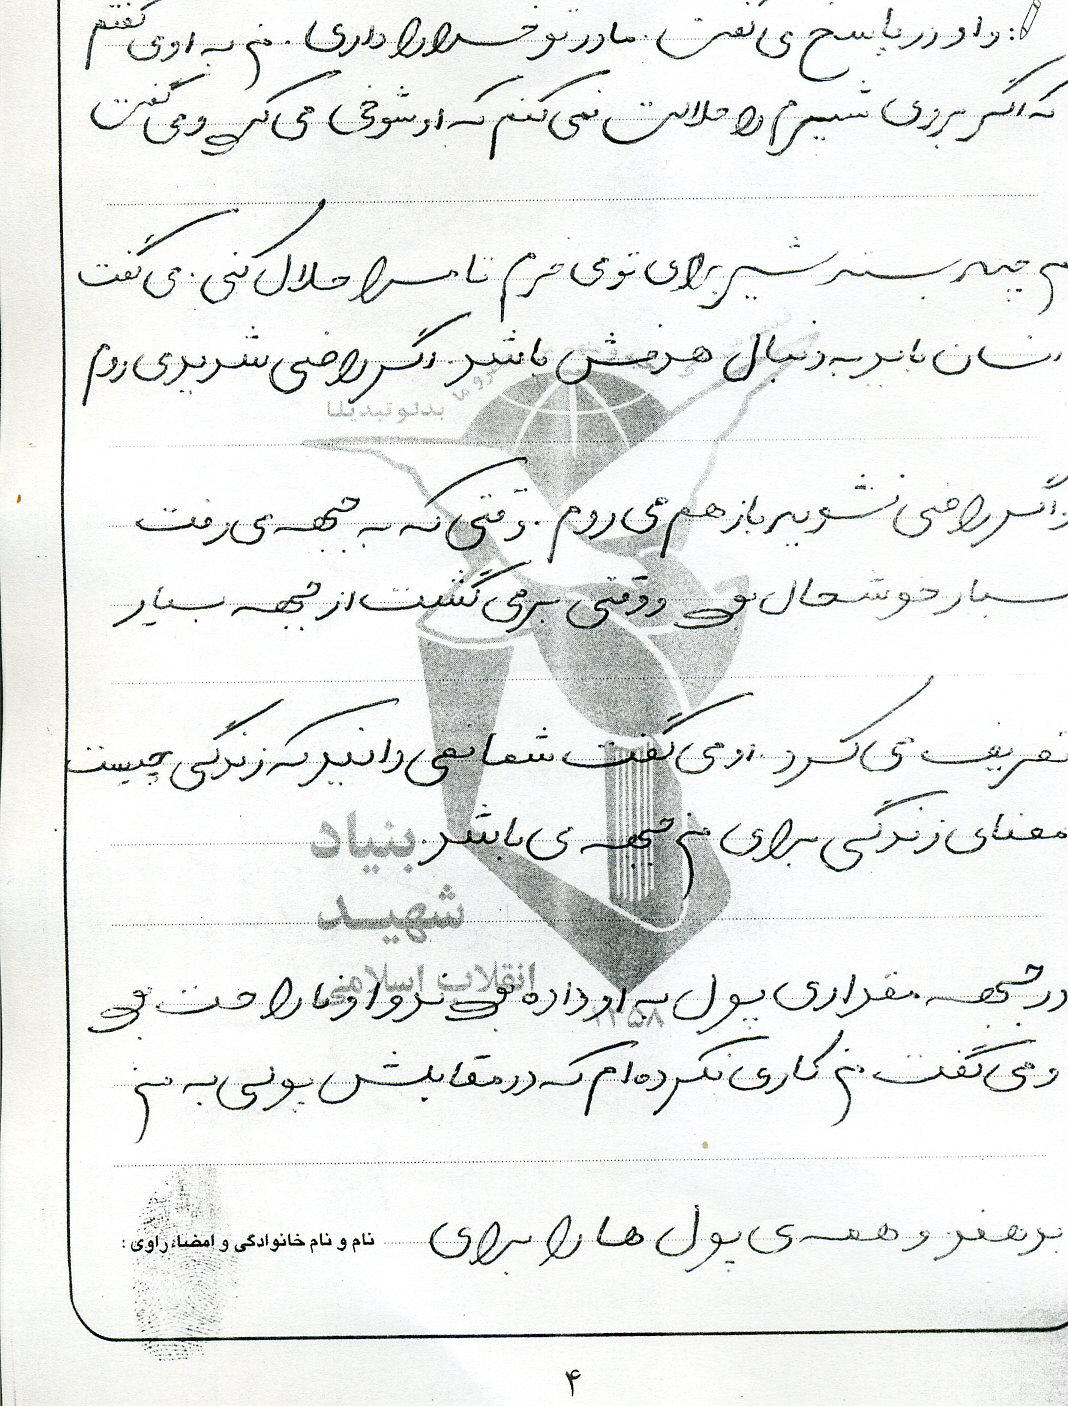 : و او در پاسخ می گفت. مادر تو خدا را داری. من به او می گفتم
که اگر بروی شیرم را حلالت نمی کنم که او شوخی می کرد و می گفت
من چند بسته شیر برای تو می خرم تا مرا حلال کنی. می گفت
انسان باید به دنبال هدفش باشد. اگر راضی شدید می روم
و اگر راضی نشوید باز هم می روم. وقتی که به جبهه می رفت
بسیار خوشحال بود و وقتی برمی گشت از جبهه بسیار
تعریف می کرد. او می گفت شما نمی دانید که زندگی چیست
معنای زندگی برای من جبهه می باشد.
در جبهه مقداری پول به او داده بودند و او ناراحت بود
و می گفت من کاری نکرده ام که در مقابلش پولی به من
بدهند و همه ی پول ها را برای
نام و نام خانوادگی و امضاء راوی :
بدلو تبدیلا
بنیاد
شهید
انقلاب اسلامی
۱۳۵۸
۴